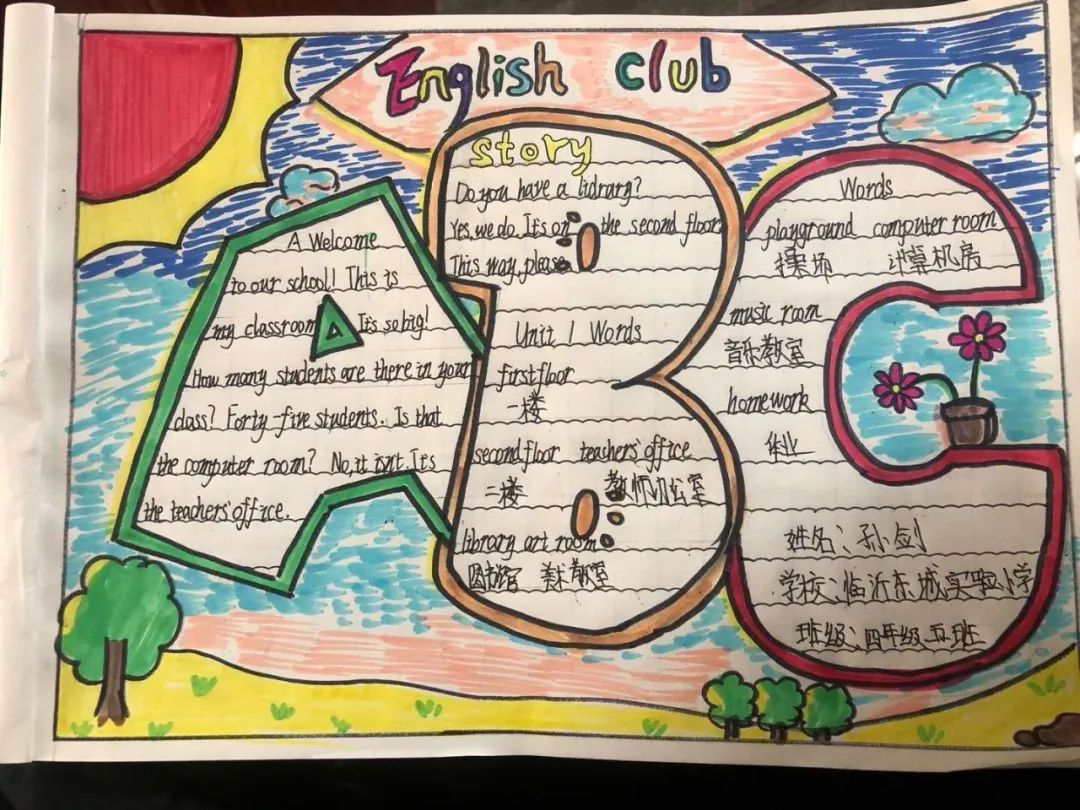 English club
A Welcome
to our school! This is
my classroom. It's so big!
How many students are there in your
class? Forty-five students. Is that
the computer room? No, it isn't. It's
the teachers' office.
story
Do you have a lidrary?
Yes, we do. It's on the second floor.
This way, please
Unit 1 Words
first floor
一楼
second floor teachers' office
二楼 教师办公室
library art room
图书馆 美术教室
Words
playground computer room
操场 计算机房
music room
音乐教室
homework
作业
姓名:孙剑
学校:临沂东城实验小学
班级:四年级五班